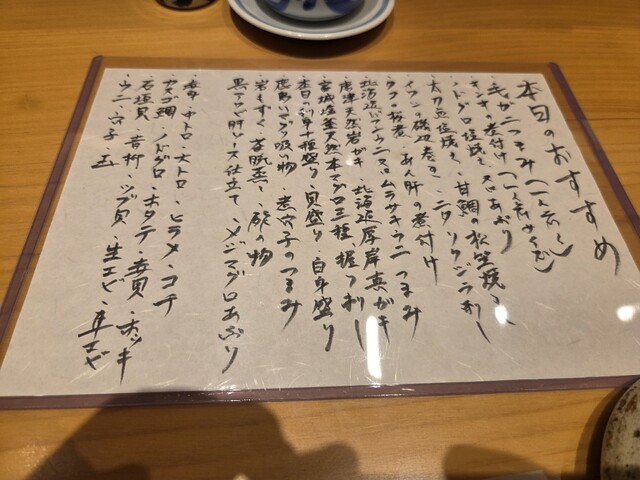 本日のおすすめ
・毛ガニつまみ(一人前)
・キンキの煮付け(一人前サイズ)
・ノドグロ塩焼き、又はあぶり
・太刀魚塩焼き、甘鯛の松笠焼き
・イワシの磯辺巻き・ニタリクジラ刺し
・タコの桜煮・あん肝の煮付け
・北海道バフンウニ又はムラサキウニつまみ
・唐津天然岩がき 北海道厚岸真がき
・宮城塩釜天然本マグロ三種、握り、刺し
・本日の刺身十種盛り・貝盛り・白身盛り
・鹿島いさり吸い物・煮穴子のつまみ
・岩もずく・茶碗蒸し・酢の物
・黒アワビ肝ソース仕立て・メジマグロあぶり
・赤身・中トロ・大トロ・ヒラメ・コチ
・カスゴ鯛・ノドグロ・ホタテ・赤貝・ホッキ
・石垣貝・青柳・ツブ貝・生エビ・車エビ
・ウニ・穴子・玉